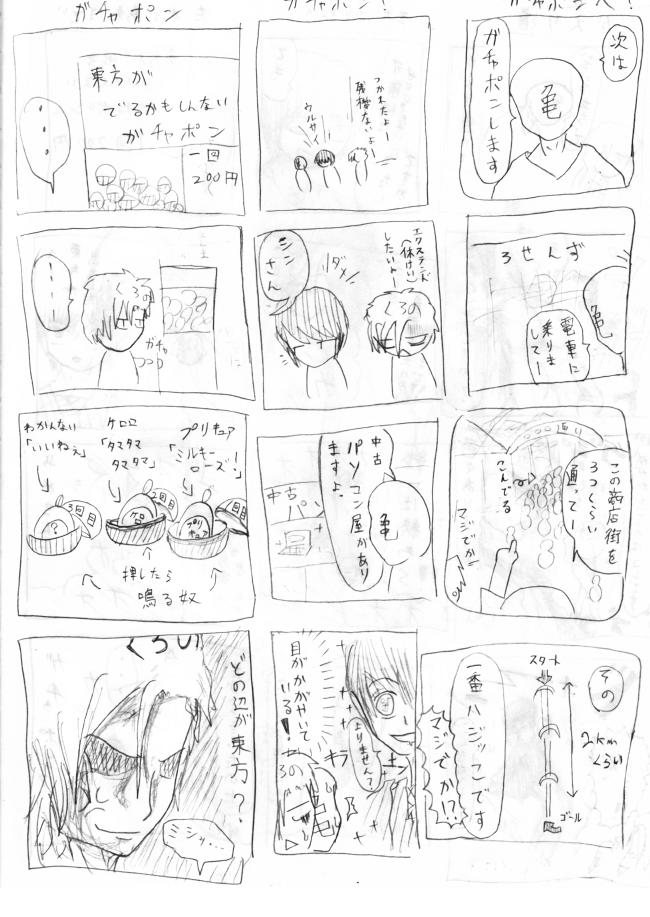 ガチャポンへ!
次は
亀
ガチャポンします
ろせんず
亀
電車に
乗りま
してー
○○○通り
この商店街を
3つくらい
通ってー
こんでる
マジでか
その
スタート
2km
くらい
ゴール
一番ハジッこです
マジでか!?
ガチャポン!
つかれたよー
残機ないよー
ウルサイ
エクステンド
(休けい)
したいよー
くろの
ダメ
シン
さん
中古
パソコン屋があり
ますよ
亀
中古パ
目がかがやいて
いる!
よりませんで
キラ
くろの
ガチャポン
東方が
でるかもしんない
ガチャポン
一回
200円
・・・
くろの
ガチャ
コーナー
プリキュア
「ミルキー
ローズ!」
ケロロ
「タマタマ
タマタマ」
わかんない
「いいねぇ」
1回目
2回目
3回目
プリ
キュア
ケロ
?
押したら
鳴る奴
くろい
どの辺が東方?
ミシッ…